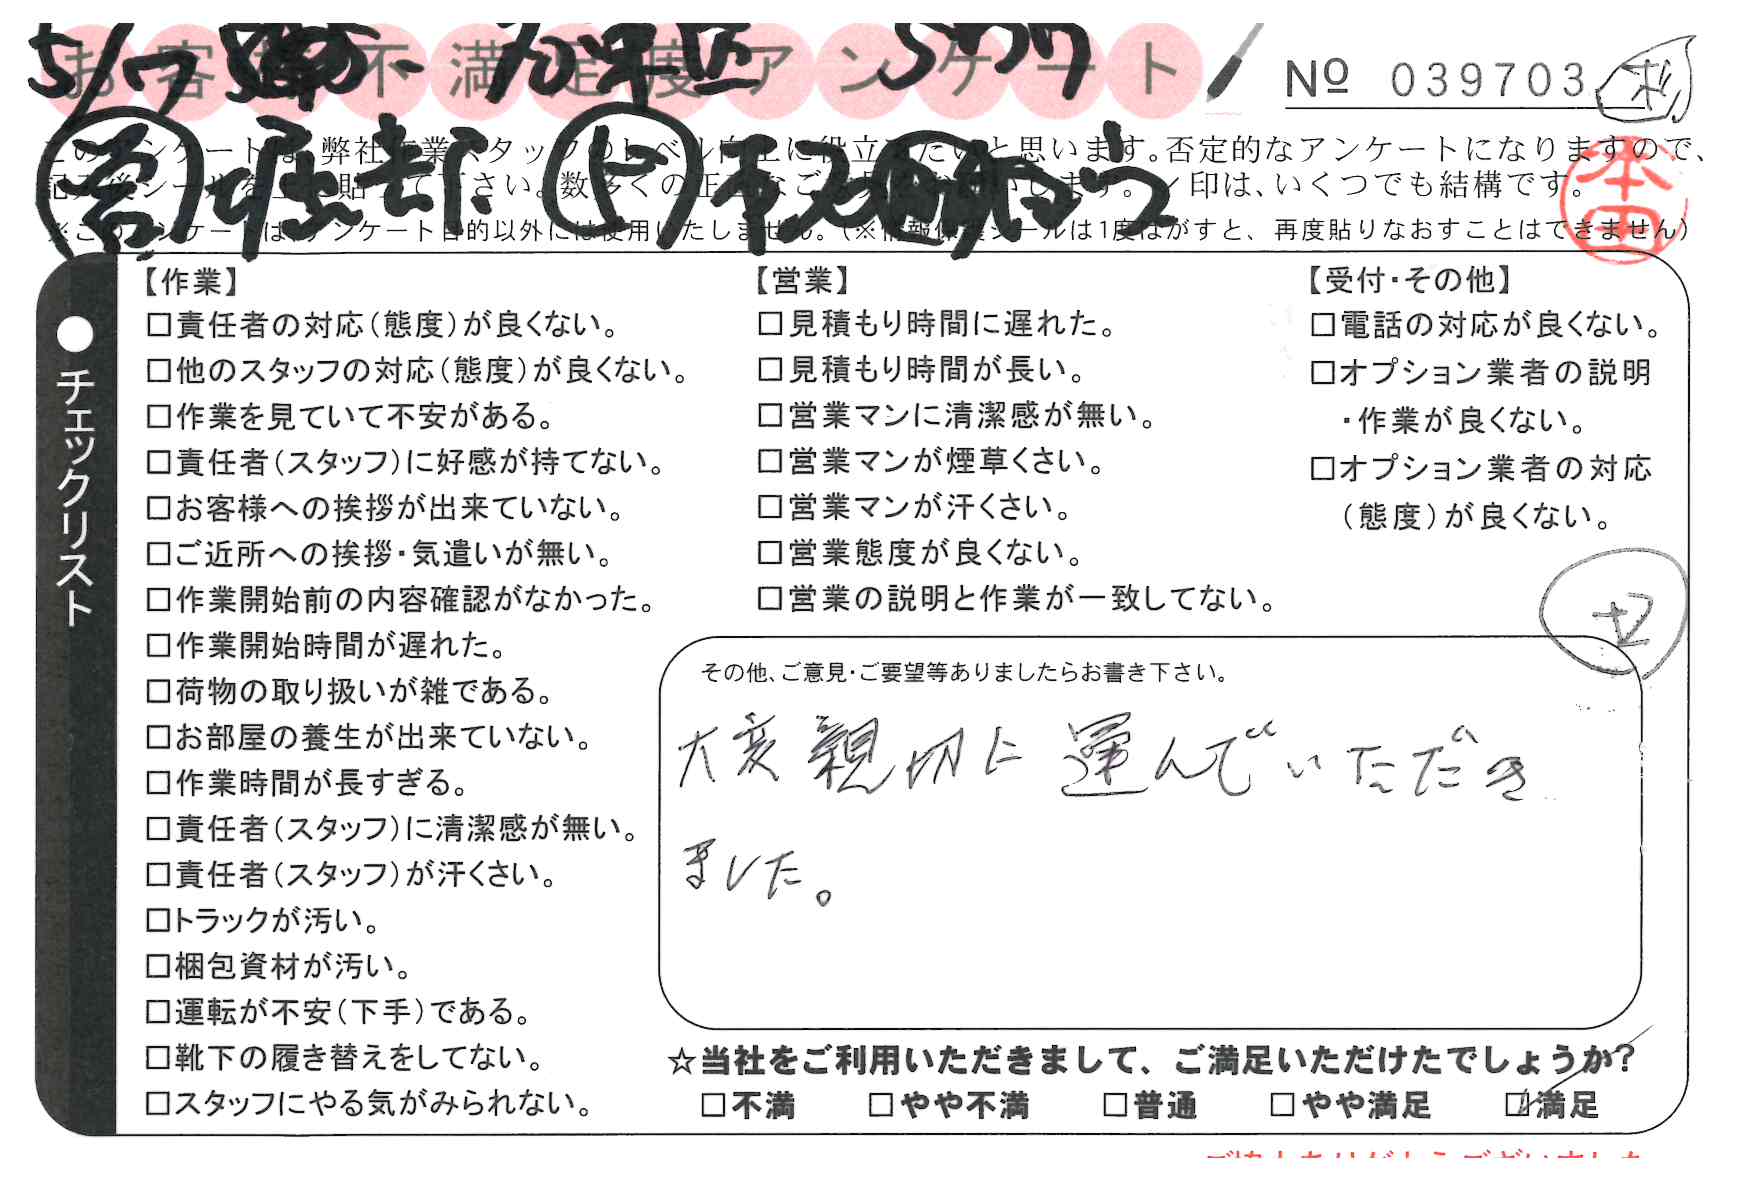 お客様不満足度アンケート
5/17
Nº 039703
このアンケートは、弊社作業スタッフのレベル向上に役立てたいと思います。否定的なアンケートになりますので、
記入後シールを上に貼って下さい。数多くの正直なご意見をお願いします。✓印は、いくつでも結構です。
※このアンケートは、アンケート目的以外には使用いたしません。(※情報保護シールは1度はがすと、再度貼りなおすことはできません)
本田
●チェックリスト
【作業】
□責任者の対応(態度)が良くない。
□他のスタッフの対応(態度)が良くない。
□作業を見ていて不安がある。
□責任者(スタッフ)に好感が持てない。
□お客様への挨拶が出来ていない。
□ご近所への挨拶・気遣いが無い。
□作業開始前の内容確認がなかった。
□作業開始時間が遅れた。
□荷物の取り扱いが雑である。
□お部屋の養生が出来ていない。
□作業時間が長すぎる。
□責任者(スタッフ)に清潔感が無い。
□責任者(スタッフ)が汗くさい。
□トラックが汚い。
□梱包資材が汚い。
□運転が不安(下手)である。
□靴下の履き替えをしてない。
□スタッフにやる気がみられない。
【営業】
□見積もり時間に遅れた。
□見積もり時間が長い。
□営業マンに清潔感が無い。
□営業マンが煙草くさい。
□営業マンが汗くさい。
□営業態度が良くない。
□営業の説明と作業が一致してない。
【受付・その他】
□電話の対応が良くない。
□オプション業者の説明
・作業が良くない。
□オプション業者の対応
(態度)が良くない。
セ
その他、ご意見・ご要望等ありましたらお書き下さい。
大変親切に運んでいただき
ました。
☆当社をご利用いただきまして、ご満足いただけたでしょうか?
□不満 □やや不満 □普通 □やや満足 ☑満足
ご協力ありがとうございました